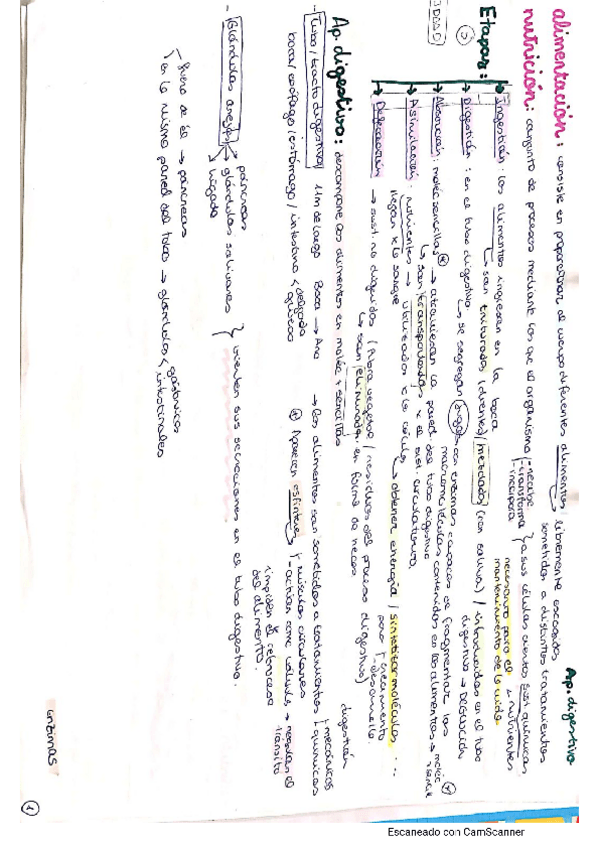 Ap. digestivo
alimentación: consiste en proporcionar al cuerpo diferentes alimentos libremente escogidos
sometidos a distintos tratamientos
nutrición: conjunto de procesos mediante los que el organismo - recibe
- transforma
- incorpora
a sus células ciertas sust. químicas
→ nutrientes
necesarias para el
mantenimiento de la vida
Etapas:
→ Ingestión: los alimentos ingresan en la boca
↳ son triturados (dientes) / mezclados (con saliva) / introducidos en el tubo
digestivo → DEGLUCIÓN
→ Digestión: en el tubo digestivo
↳ se segregan jugos con enzimas capaces de fragmentar las
macromoléculas contenidas en los alimentos →
→ Absorción: moléc sencillas → atraviesan la pared del tubo digestivo
↳ son transportadas x el sist. circulatorio.
→ Asimilación: nutrientes → utilizados x la célula
↳ obtener energía / sintetizar moléculas...
para - crecimiento
- desarrollo.
llegan x la sangre
→ Defecación → sust. no digeridas (fibra vegetal / residuos del proceso digestivo)
↳ son eliminadas en forma de heces
Ap. digestivo: descompone los alimentos en moléc + sencillas
digestión
- Tubo / tracto digestivo 11m de largo Boca → Ano → los alimentos son sometidos a tratamientos - mecánicos
- químicos
boca / esófago / estómago / intestino < delgado
grueso
Aparecen esfínteres - músculos circulares
- actúan como válvula → regulan el
tránsito
impiden el retroceso
del alimento.
- Glándulas anejas
páncreas
glándulas salivares
hígado
vierten sus secreciones en el tubo digestivo.
fuera de él → páncreas
en la misma pared del tubo → glándulas < gástricas
intestinales
1
Escaneado con CamScanner